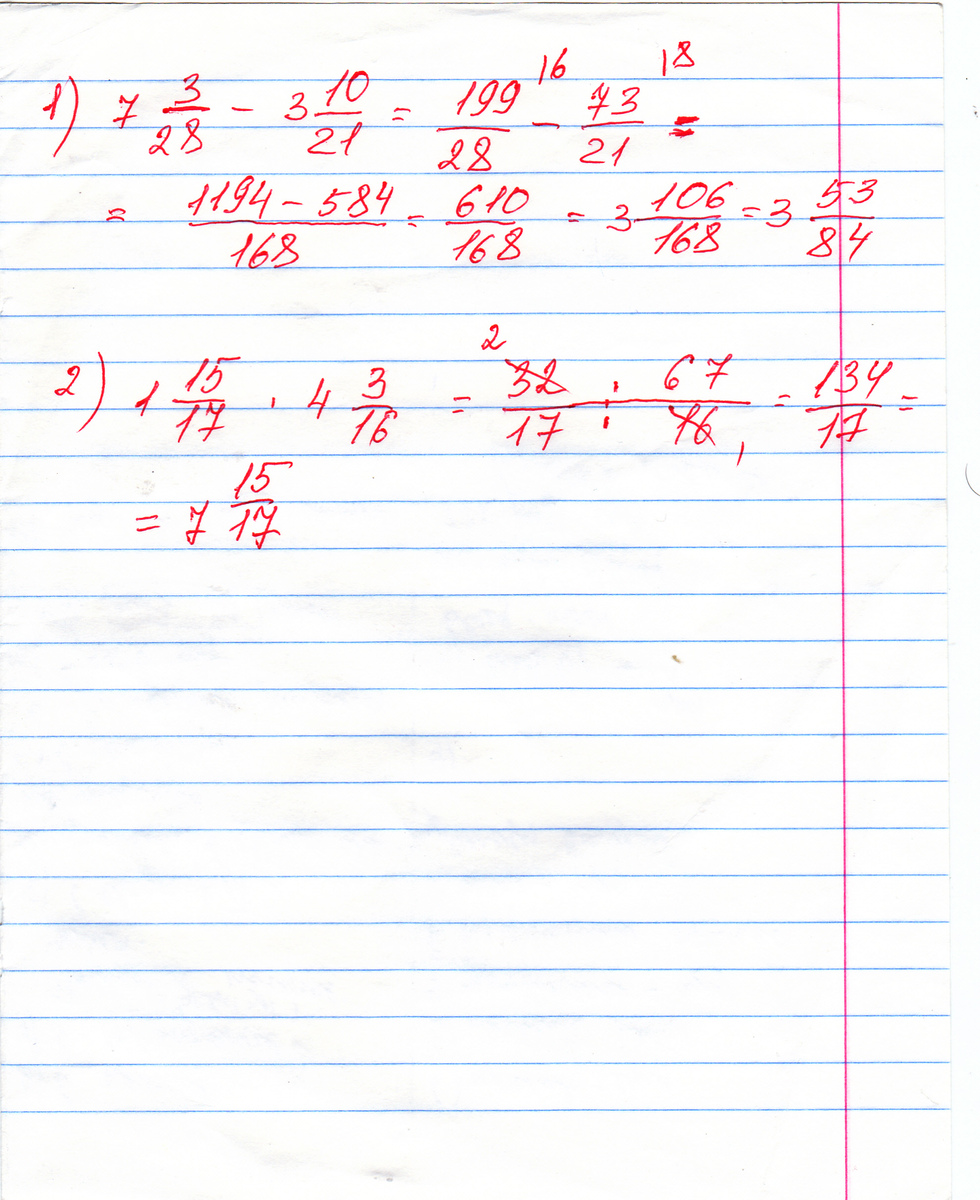 1) 7 3/28 - 3 10/21 = 199/28 |6 - 73/21 |8 =
= (1194 - 584)/168 = 610/168 = 3 106/168 = 3 53/84
2) 1 15/17 · 4 3/16 = 32/17 2 : 67/16 1 = 134/17 =
= 7 15/17